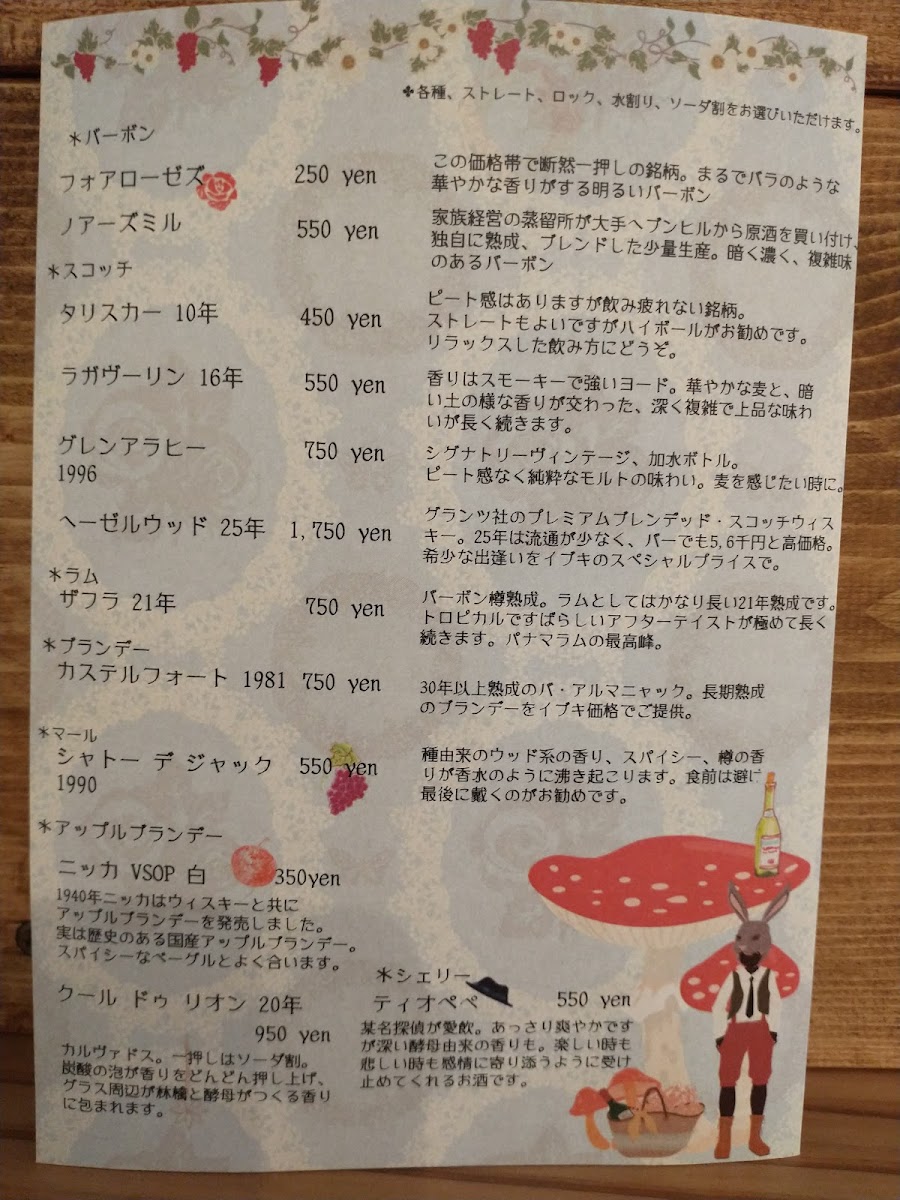 ✤各種、ストレート、ロック、水割り、ソーダ割をお選びいただけます。
＊バーボン
フォアローゼズ 250 yen
この価格帯で断然一押しの銘柄。まるでバラのような
華やかな香りがする明るいバーボン
ノアーズミル 550 yen
家族経営の蒸留所が大手ヘブンヒルから原酒を買い付け、
独自に熟成、ブレンドした少量生産。暗く濃く、複雑味
のあるバーボン
＊スコッチ
タリスカー 10年 450 yen
ピート感はありますが飲み疲れない銘柄。
ストレートもよいですがハイボールがお勧めです。
リラックスした飲み方にどうぞ。
ラガヴーリン 16年 550 yen
香りはスモーキーで強いヨード。華やかな麦と、暗
い土の様な香りが交わった、深く複雑で上品な味わ
いが長く続きます。
グレンアラヒー 750 yen
1996
シグナトリーヴィンテージ、加水ボトル。
ピート感なく純粋なモルトの味わい。麦を感じたい時に。
ヘーゼルウッド 25年 1,750 yen
グランツ社のプレミアムブレンデッド・スコッチウィス
キー。25年は流通が少なく、バーでも5,6千円と高価格。
希少な出逢いをイブキのスペシャルプライスで。
＊ラム
ザフラ 21年 750 yen
バーボン樽熟成。ラムとしてはかなり長い21年熟成です。
トロピカルですばらしいアフターテイストが極めて長く
続きます。パナマラムの最高峰。
＊ブランデー
カステルフォート 1981 750 yen
30年以上熟成のバ・アルマニャック。長期熟成
のブランデーをイブキ価格でご提供。
＊マール
シャトー デ ジャック 550 yen
1990
種由来のウッド系の香り、スパイシー、樽の香
りが香水のように沸き起こります。食前は避け
最後に戴くのがお勧めです。
＊アップルブランデー
ニッカ VSOP 白 350yen
1940年ニッカはウィスキーと共に
アップルブランデーを発売しました。
実は歴史のある国産アップルブランデー。
スパイシーなベーグルとよく合います。
クール ドゥ リオン 20年
950 yen
カルヴァドス。一押しはソーダ割。
炭酸の泡が香りをどんどん押し上げ、
グラス周辺が林檎と酵母がつくる香り
に包まれます。
＊シェリー
ティオペペ 550 yen
某名探偵が愛飲。あっさり爽やかです
が深い酵母由来の香りも。楽しい時も
悲しい時も感情に寄り添うように受け
止めてくれるお酒です。